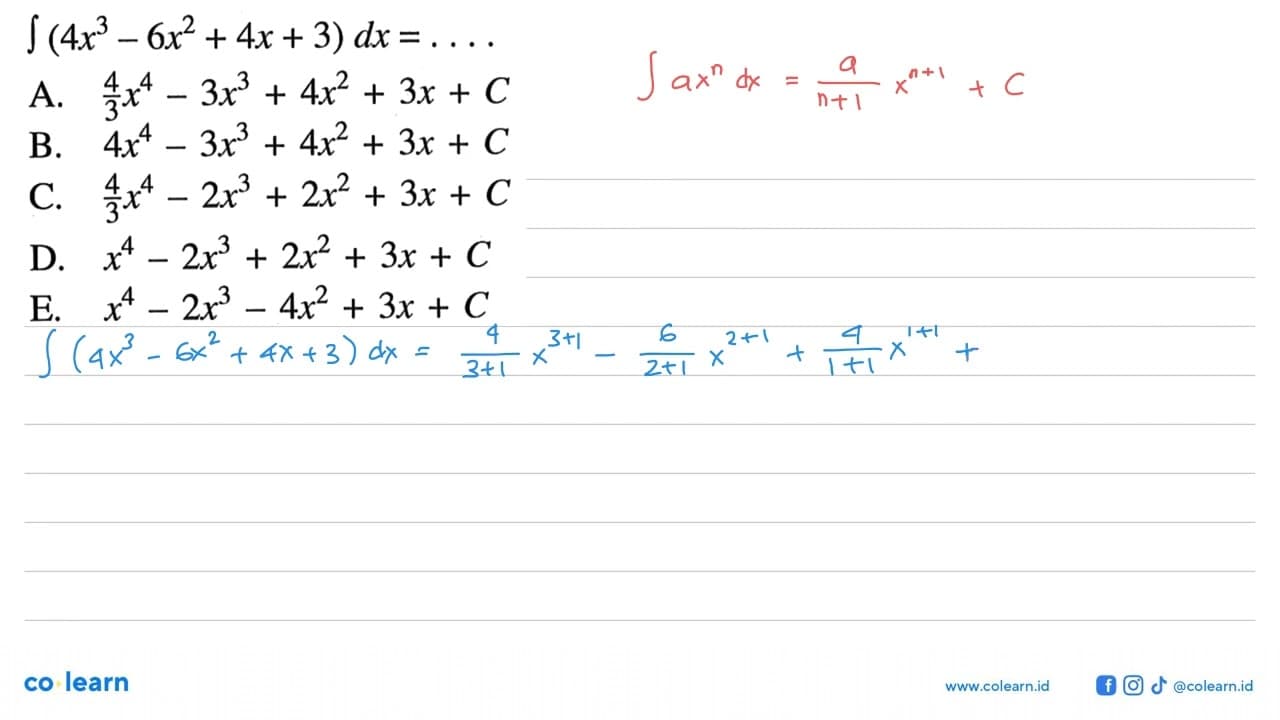 ∫ (4x³ – 6x² + 4x + 3) dx = . . . .
A. 4/3 x⁴ – 3x³ + 4x² + 3x + C
B. 4x⁴ – 3x³ + 4x² + 3x + C
C. 4/3 x⁴ – 2x³ + 2x² + 3x + C
D. x⁴ – 2x³ + 2x² + 3x + C
E. x⁴ – 2x³ – 4x² + 3x + C
∫ axⁿ dx = a/(n+1) xⁿ⁺¹ + C
∫ (4x³ - 6x² + 4x + 3) dx = 4/(3+1) x³⁺¹ - 6/(2+1) x²⁺¹ + 4/(1+1) x¹⁺¹ +
co learn
www.colearn.id
@colearn.id